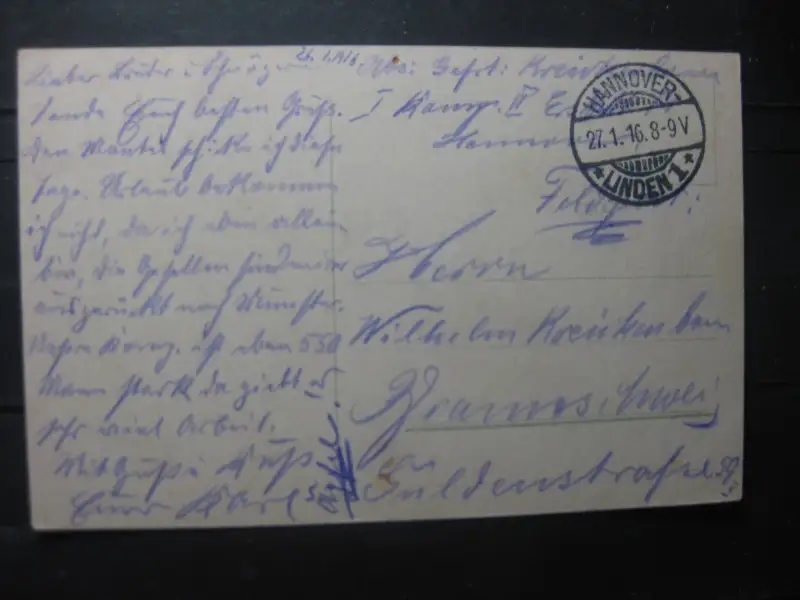 26.1.1916
Lieber Bruder u Schwägerin
sende Euch besten Gruß.
den Mantel schicke ich diese
Tage. Urlaub bekomme
ich nicht, da ich eben allein
bin, die Gesellen sind
ausgerückt nach Munster.
Unsere Komp. ist eben 550
Mann stark da giebt es
sehr viel Arbeit.
Mit Gruß u Kuß
Euer Karl
Abs: Gefrt:
I Komp. II
Hannover
Feldpost:
HANNOVER-
27.1.16.8-9V
* LINDEN 1 *
Herrn
Wilhelm
Braunschweig
Guldenstraße